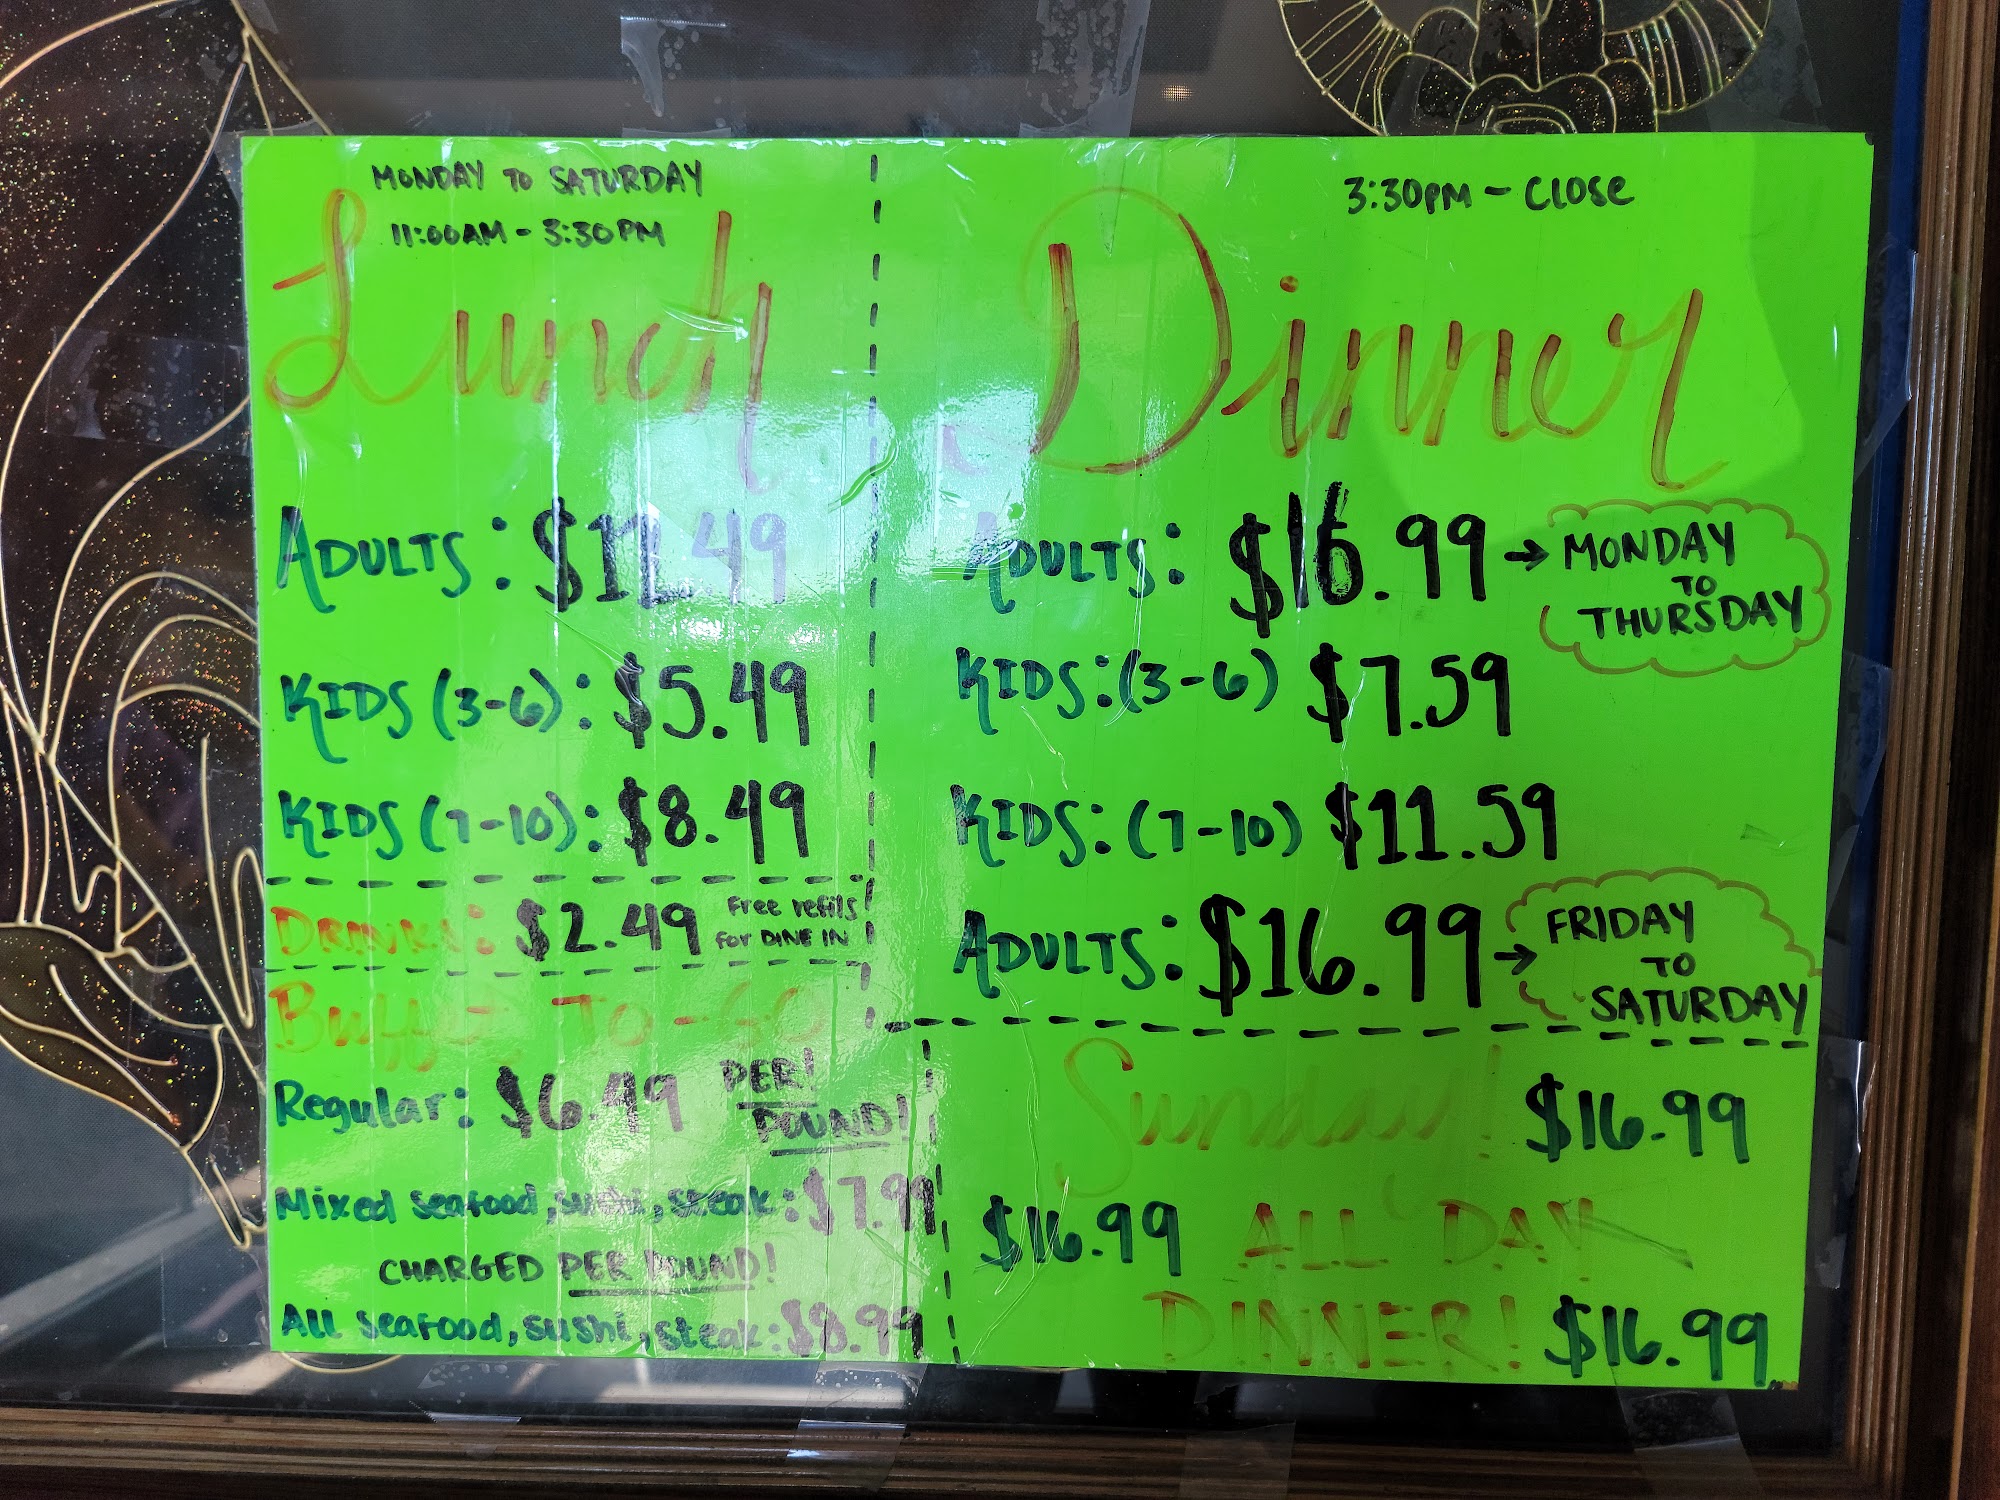 MONDAY TO SATURDAY
11:00AM - 3:30PM
Lunch
ADULTS: $11.49
KIDS (3-6): $5.49
KIDS (7-10): $8.49
DRINKS: $2.49 Free refills!
FOR DINE IN
Buffet TO-GO
Regular: $6.49 PER!
POUND!
Mixed seafood, sushi, steak: $7.99
CHARGED PER POUND!
All seafood, sushi, steak: $8.99
3:30PM - CLOSE
Dinner
ADULTS: $16.99 → MONDAY
TO
THURSDAY
KIDS: (3-6) $7.59
KIDS: (7-10) $11.59
ADULTS: $16.99 → FRIDAY
TO
SATURDAY
Sunday! $16.99
$16.99 ALL DAY
DINNER! $16.99